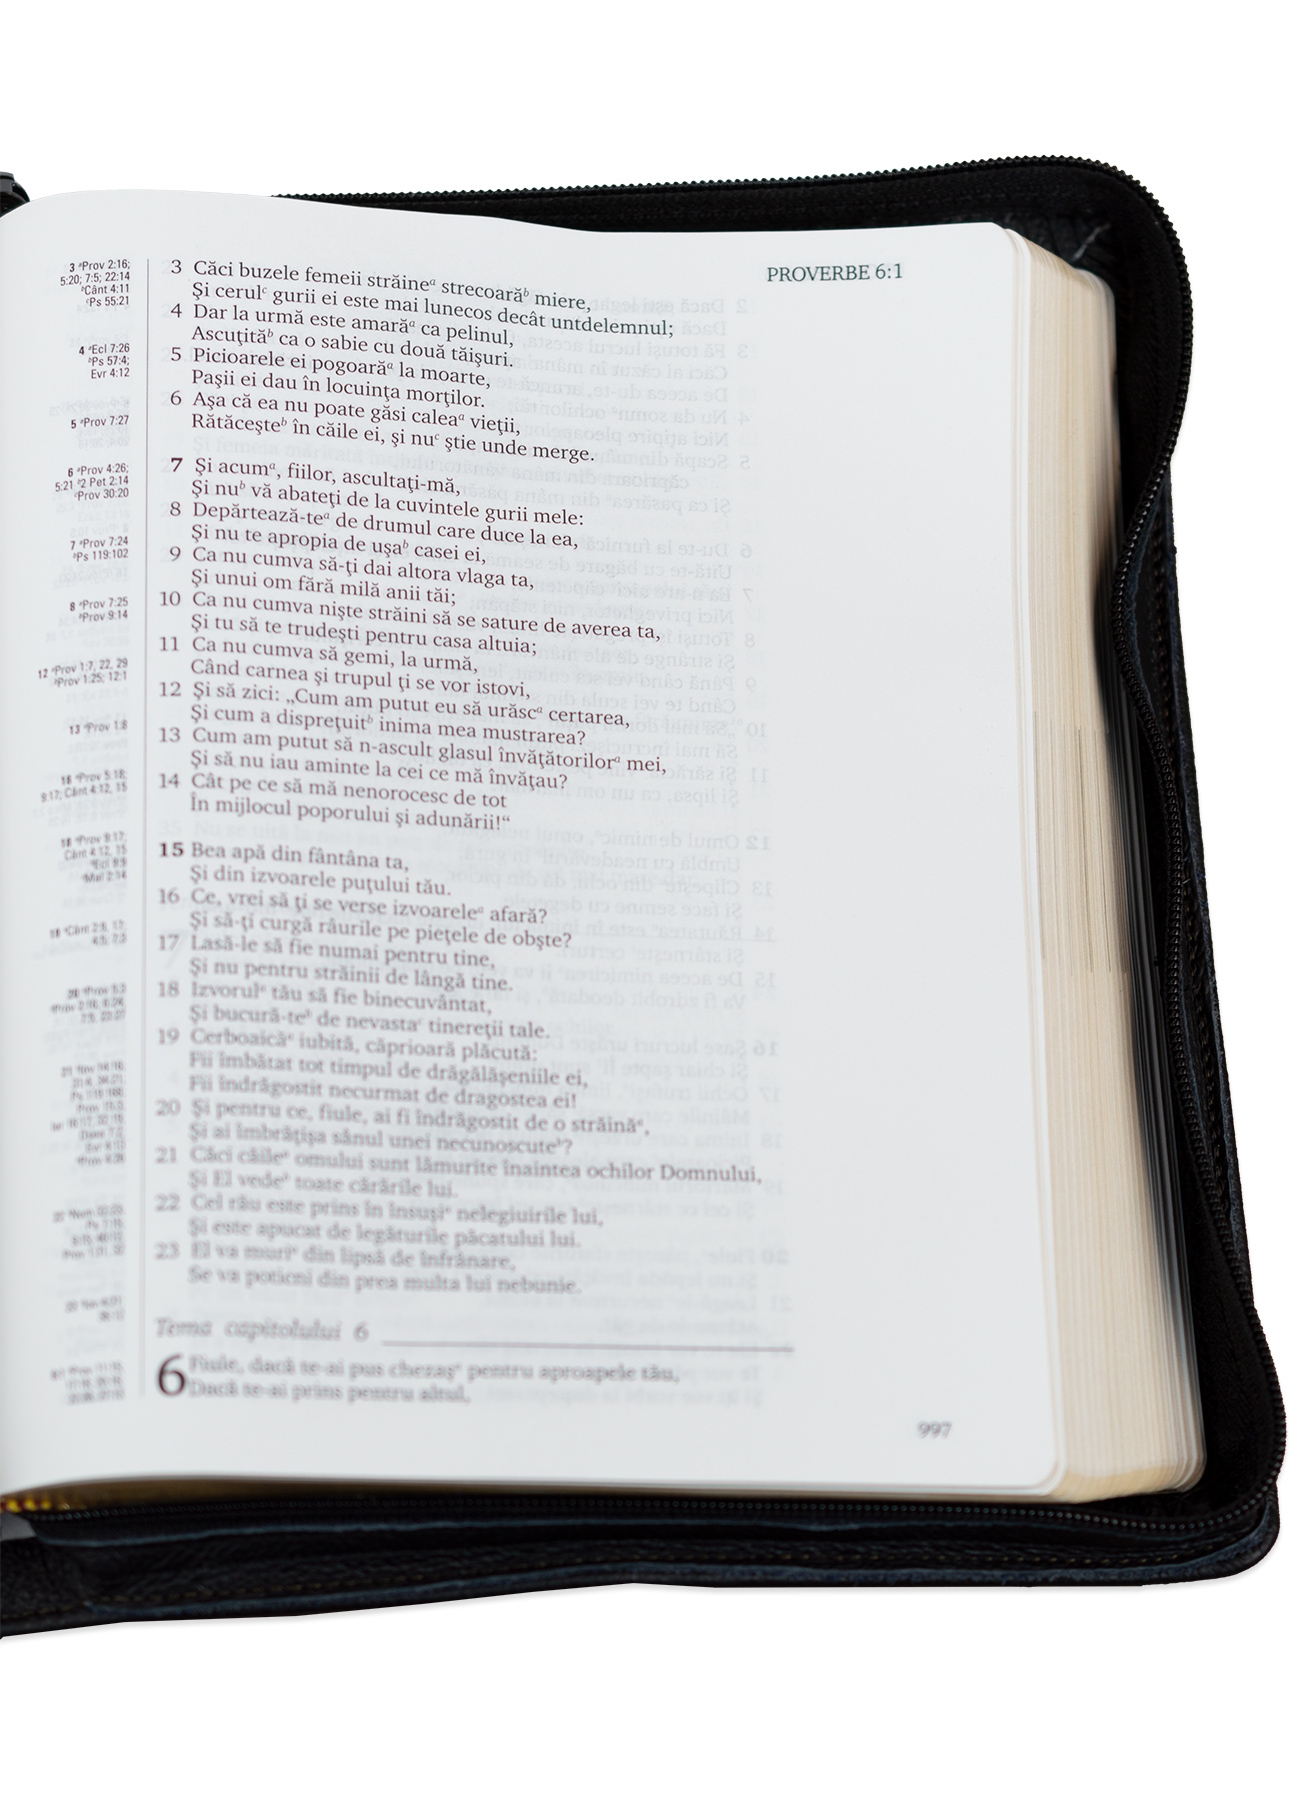 PROVERBE 6:1
3 ᵃProv 2:16;
5:20; 7:5; 22:14
ᵇCânt 4:11
ᶜPs 55:21
4 ᵃEcl 7:26
ᵇPs 57:4;
Evr 4:12
5 ᵃProv 7:27
6 ᵃProv 4:26;
5:21 ᵇ2 Pet 2:14
ᶜProv 30:20
7 ᵃProv 7:24
ᵇPs 119:102
8 ᵃProv 7:25
ᵇProv 9:14
12 ᵃProv 1:7, 22, 29
ᵇProv 1:25; 12:1
13 ᵃProv 1:8
16 ᵃProv 5:18;
9:17; Cânt 4:12, 15
18 ᵃProv 9:17;
Cânt 4:12, 15
ᵇEcl 9:9
ᶜMal 2:14
19 ᵃCânt 2:9, 17;
4:5; 7:3
3 Căci buzele femeii străineᵃ strecoarăᵇ miere,
Şi cerulᶜ gurii ei este mai lunecos decât untdelemnul;
4 Dar la urmă este amarăᵃ ca pelinul,
Ascuţităᵇ ca o sabie cu două tăişuri.
5 Picioarele ei pogoarăᵃ la moarte,
Paşii ei dau în locuinţa morţilor.
6 Aşa că ea nu poate găsi caleaᵃ vieţii,
Rătăceşteᵇ în căile ei, şi nuᶜ ştie unde merge.
7 Şi acumᵃ, fiilor, ascultaţi-mă,
Şi nuᵇ vă abateţi de la cuvintele gurii mele:
8 Depărtează-teᵃ de drumul care duce la ea,
Şi nu te apropia de uşaᵇ casei ei,
9 Ca nu cumva să-ţi dai altora vlaga ta,
Şi unui om fără milă anii tăi;
10 Ca nu cumva nişte străini să se sature de averea ta,
Şi tu să te trudeşti pentru casa altuia;
11 Ca nu cumva să gemi, la urmă,
Când carnea şi trupul ţi se vor istovi,
12 Şi să zici: „Cum am putut eu să urăscᵃ certarea,
Şi cum a dispreţuitᵇ inima mea mustrarea?
13 Cum am putut să n-ascult glasul învăţătorilorᵃ mei,
Şi să nu iau aminte la cei ce mă învăţau?
14 Cât pe ce să mă nenorocesc de tot
În mijlocul poporului şi adunării!“
15 Bea apă din fântâna ta,
Şi din izvoarele puţului tău.
16 Ce, vrei să ţi se verse izvoareleᵃ afară?
Şi să-ţi curgă râurile pe pieţele de obşte?
17 Lasă-le să fie numai pentru tine,
Şi nu pentru străinii de lângă tine.
18 Izvorulᵃ tău să fie binecuvântat,
Şi bucură-teᵇ de nevastaᶜ tinereţii tale.
19 Cerboaicăᵃ iubită, căprioară plăcută:
Fii îmbătat tot timpul de drăgălăşeniile ei,
Fii îndrăgostit necurmat de dragostea ei!
20 Şi pentru ce, fiule, ai fi îndrăgostit de o străinăᵃ,
Şi ai îmbrăţişa sânul unei necunoscuteᵇ?
21 Căci căileᵃ omului sunt lămurite înaintea ochilor Domnului,
Şi El vedeᵇ toate cărările lui.
22 Cel rău este prins în însuşiᵃ nelegiuirile lui,
Şi este apucat de legăturile păcatului lui.
23 El va muriᵃ din lipsă de înfrânare,
Se va poticni din prea multa lui nebunie.
Tema capitolului 6
6 Fiule, dacă te-ai pus chezaşᵃ pentru aproapele tău,
Dacă te-ai prins pentru altul,
997